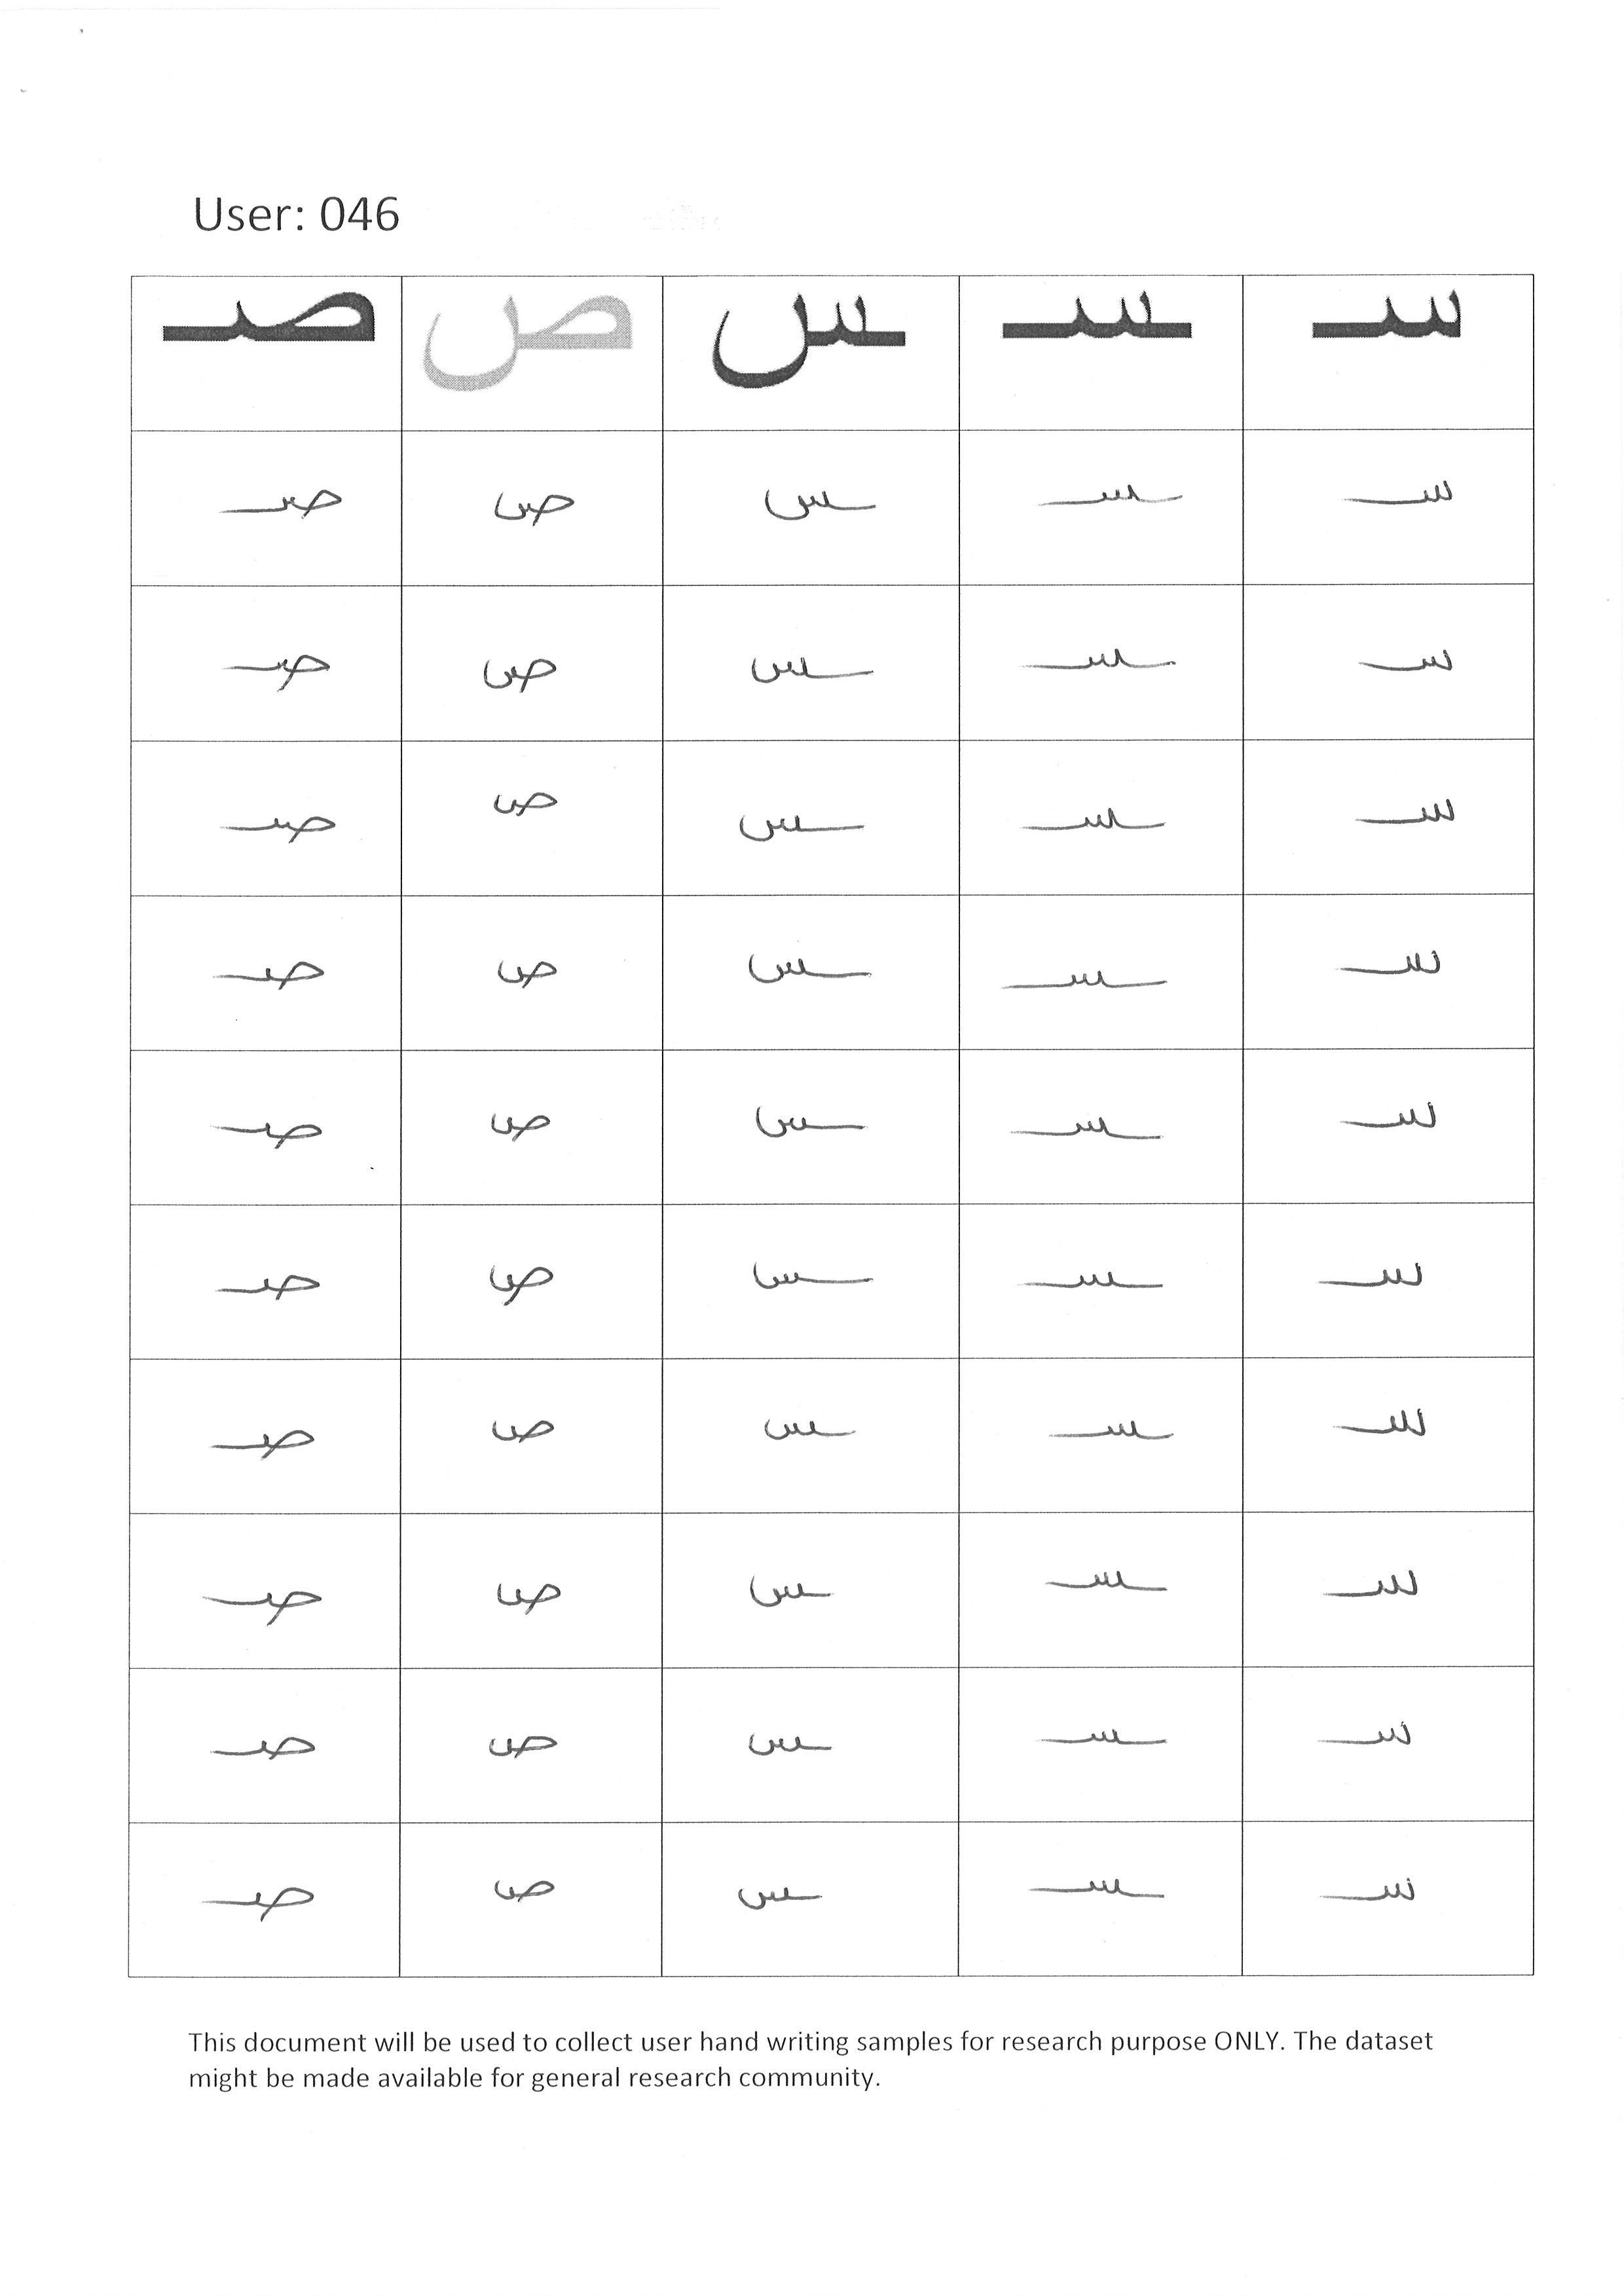 User: 046
سـ ـسـ ـس ص صـ
سـ ـسـ ـس ص صـ
سـ ـسـ ـس ص صـ
سـ ـسـ ـس ص صـ
سـ ـسـ ـس ص صـ
سـ ـسـ ـس ص صـ
سـ ـسـ ـس ص صـ
سـ ـسـ ـس ص صـ
سـ ـسـ ـس ص صـ
سـ ـسـ ـس ص صـ
سـ ـسـ ـس ص صـ
This document will be used to collect user hand writing samples for research purpose ONLY. The dataset
might be made available for general research community.